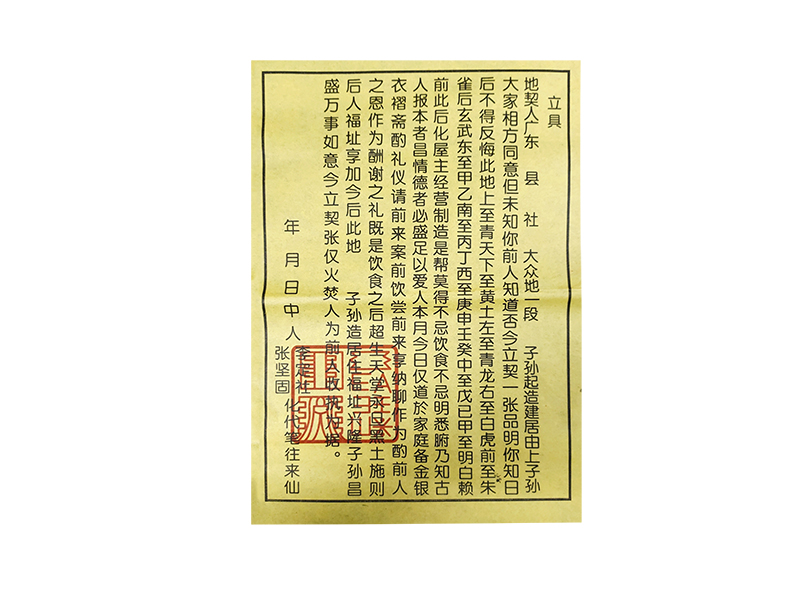 立具
地契人广东 县 社 大众地一段 子孙起造建居由上子孙
大家相方同意但未知你前人知道否今立契一张品明你知日
后不得反悔此地上至青天下至黄土左至青龙右至白虎前至朱
雀后玄武东至甲乙南至丙丁西至庚申壬癸中至戊已甲至明白赖
前此后化屋主经营制造是帮莫得不忌饮食不忌明悉腑乃知古
人报本者昌情德者必盛足以爱人本月今日仅道於家庭备金银
衣褶斋酌礼仪请前来案前饮尝前来享纳聊作为酌前人
之恩作为酬谢之礼既是饮食之后超生天堂永日黑土施则
后人福址享加今后此地 子孙造居住福址兴隆子孙昌
盛万事如意今立契张仅火焚人为前人收执为据。
年月日中人李定社
张坚固
化代笔往来仙